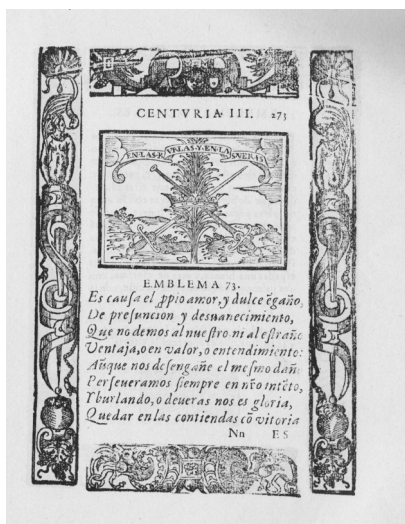 CENTVRIA III. 273
EN·LAS·BVRLAS·Y·EN·LAS VERAS
EMBLEMA 73.
Es cauſa el ꝓpio amor, y dulce ẽgaño,
De preſuncion y desuanecimiento,
Que no demos al nueſtro ni al eſtraño
Ventaja, o en valor, o entendimiento:
Aũque nos deſengañe el meſmo daño
Perſeueramos ſiempre en nr̃o intẽto,
Y burlando, o deueras nos es gloria,
Quedar en las contiendas cõ vitoria
Nn ES